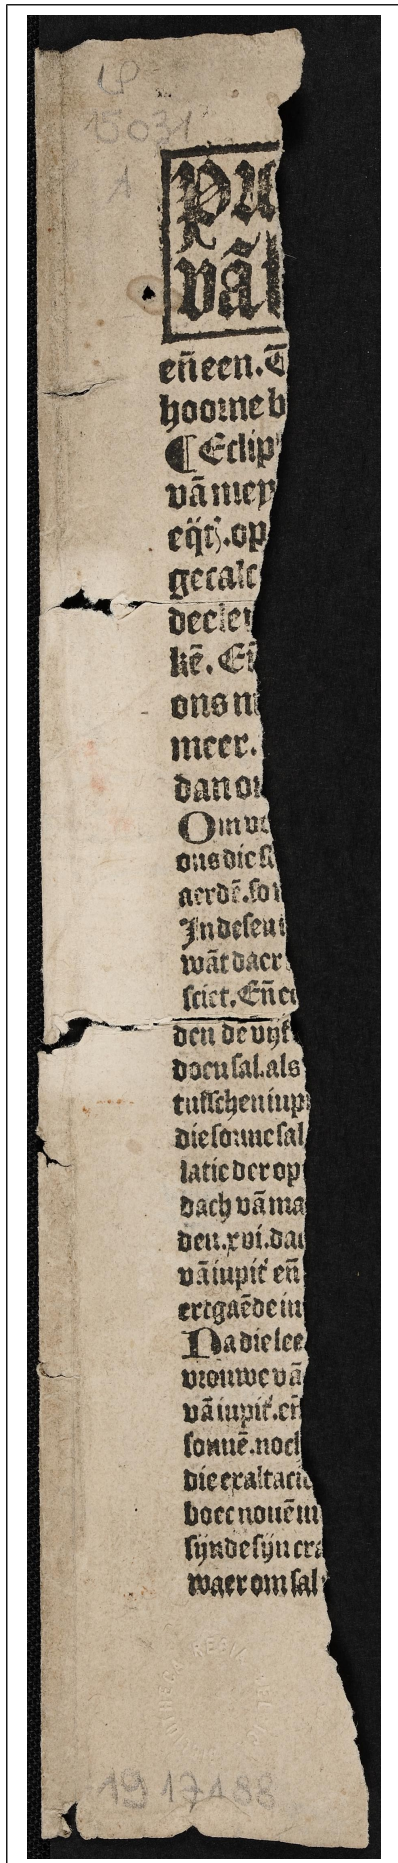 LP
15031
A
Pu
vā
eñ een. T
hoorne b
¶ Eclip
vā mey
eq̃t. op
gecalc
decley
kē. Eñ
ons m
meer.
dan on
Om vo
ons die s
aerdē. so
In desen
wāt daer
sciet. Eñ
den de vyf
doen sal. als
tusschen iup
die sonne sal
latie der op
dach vā ma
den. xvi. da
vā iupit̃ eñ
ertgaēde in
Na die lee
vrouwe vā
vā iupit̃. eñ
sonnē. noch
die exaltacio
boec nouē in
sijnde sijn cra
waer om sal
BIBLIOTHECA REGIA BELGICA
19 17188